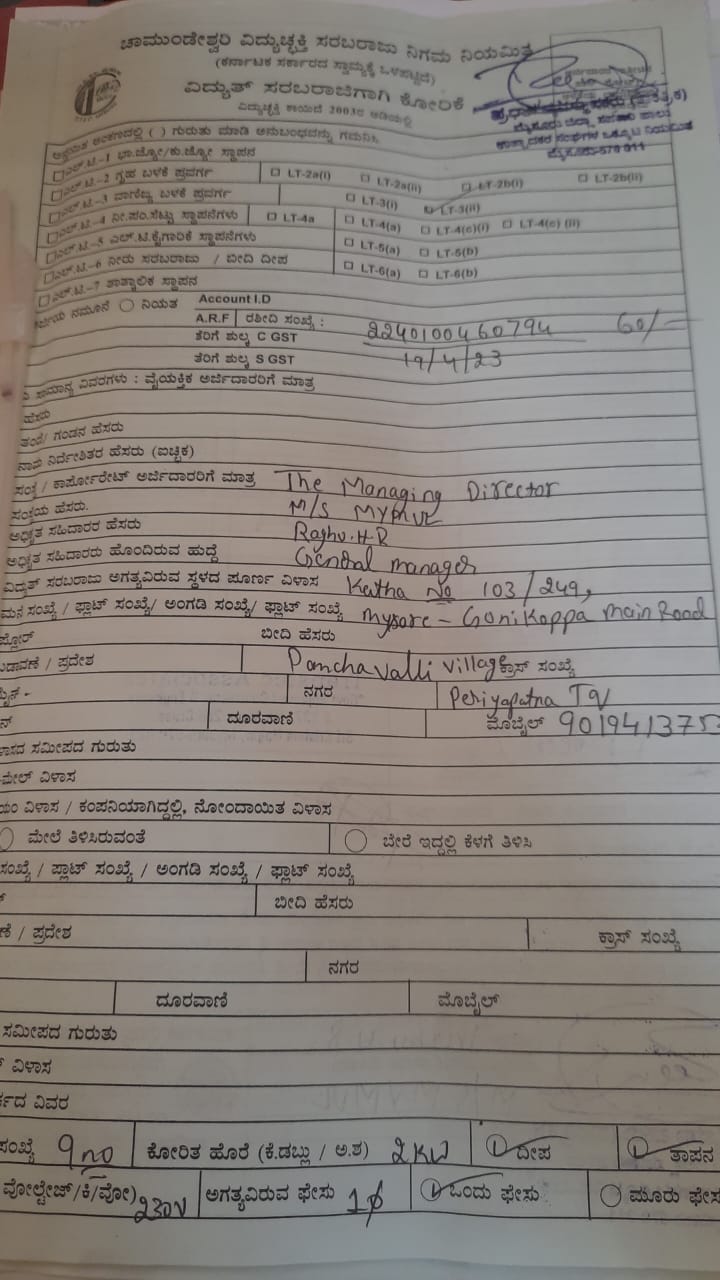 ಚಾಮುಂಡೇಶ್ವರಿ ವಿದ್ಯುಚ್ಛಕ್ತಿ ಸರಬರಾಜು ನಿಗಮ ನಿಯಮಿತ
(ಕರ್ನಾಟಕ ಸರ್ಕಾರದ ಸ್ವಾಮ್ಯಕ್ಕೆ ಒಳಪಟ್ಟಿದೆ)
ವಿದ್ಯುತ್ ಸರಬರಾಜಿಗಾಗಿ ಕೋರಿಕೆ
ವಿದ್ಯುಚ್ಛಕ್ತಿ ಕಾಯಿದೆ 2003ರ ಅಡಿಯಲ್ಲಿ
ಮೈಸೂರು-570 011
ಅಂಕಣದಲ್ಲಿ ( ) ಗುರುತು ಮಾಡಿ ಅನುಬಂಧವನ್ನು ಗಮನಿಸಿ
ಎಲ್.ಟಿ.-1 ಭಾ.ಜ್ಯೋ/ಕು.ಜ್ಯೋ ಸ್ಥಾಪನ
ಎಲ್.ಟಿ.-2 ಗೃಹ ಬಳಕೆ ಪ್ರವರ್ಗ LT-2a(i) LT-2a(ii) LT-2b(i) LT-2b(ii)
ಎಲ್.ಟಿ.-3 ವಾಣಿಜ್ಯ ಬಳಕೆ ಪ್ರವರ್ಗ LT-3(i) LT-3(ii)
ಎಲ್.ಟಿ.-4 ನೀ.ಪಂ.ಸೆಟ್ಟು ಸ್ಥಾಪನೆಗಳು LT-4a LT-4(a) LT-4(c)(i) LT-4(c) (ii)
ಎಲ್.ಟಿ.-5 ಎಲ್.ಟಿ.ಕೈಗಾರಿಕೆ ಸ್ಥಾಪನೆಗಳು LT-5(a) LT-5(b)
ಎಲ್.ಟಿ.-6 ನೀರು ಸರಬರಾಜು / ಬೀದಿ ದೀಪ LT-6(a) LT-6(b)
ಎಲ್.ಟಿ.-7 ತಾತ್ಕಾಲಿಕ ಸ್ಥಾಪನ
ನಮೂನೆ ನಿಯತ Account I.D
A.R.F ರಶೀದಿ ಸಂಖ್ಯೆ : 2240100460794 60/-
ತೆರಿಗೆ ಶುಲ್ಕ C GST
ತೆರಿಗೆ ಶುಲ್ಕ S GST 19/4/23
ಸಾಮಾನ್ಯ ವಿವರಗಳು : ವೈಯಕ್ತಿಕ ಅರ್ಜಿದಾರರಿಗೆ ಮಾತ್ರ
ಹೆಸರು
ತಂದೆ/ ಗಂಡನ ಹೆಸರು
ನಾಮ ನಿರ್ದೇಶಿತರ ಹೆಸರು (ಐಚ್ಛಿಕ)
ಸಂಸ್ಥೆ / ಕಾರ್ಪೋರೇಟ್ ಅರ್ಜಿದಾರರಿಗೆ ಮಾತ್ರ The Managing Director
ಸಂಸ್ಥೆಯ ಹೆಸರು. M/S
ಅಧಿಕೃತ ಸಹಿದಾರರ ಹೆಸರು Raghu.H.R
ಅಧಿಕೃತ ಸಹಿದಾರರು ಹೊಂದಿರುವ ಹುದ್ದೆ General manager
ವಿದ್ಯುತ್ ಸರಬರಾಜು ಅಗತ್ಯವಿರುವ ಸ್ಥಳದ ಪೂರ್ಣ ವಿಳಾಸ Katha No 103/249,
ಮನೆ ಸಂಖ್ಯೆ / ಫ್ಲಾಟ್ ಸಂಖ್ಯೆ/ ಅಂಗಡಿ ಸಂಖ್ಯೆ/ ಫ್ಲಾಟ್ ಸಂಖ್ಯೆ mysore - Gonikoppa main Road
ಫ್ಲೋರ್ ಬೀದಿ ಹೆಸರು
ಬಡಾವಣೆ / ಪ್ರದೇಶ Panchavalli village ಕ್ರಾಸ್ ಸಂಖ್ಯೆ
ನಗರ Periyapatna TQ
ದೂರವಾಣಿ ಮೊಬೈಲ್ 901941375
ಸಮೀಪದ ಗುರುತು
ಮೇಲ್ ವಿಳಾಸ
ವಿಳಾಸ / ಕಂಪನಿಯಾಗಿದ್ದಲ್ಲಿ, ನೋಂದಾಯಿತ ವಿಳಾಸ
ಮೇಲೆ ತಿಳಿಸಿರುವಂತೆ ಬೇರೆ ಇದ್ದಲ್ಲಿ ಕೆಳಗೆ ತಿಳಿಸಿ
ಸಂಖ್ಯೆ / ಪ್ಲಾಟ್ ಸಂಖ್ಯೆ / ಅಂಗಡಿ ಸಂಖ್ಯೆ / ಫ್ಲಾಟ್ ಸಂಖ್ಯೆ
ಬೀದಿ ಹೆಸರು
ಣೆ / ಪ್ರದೇಶ ಕ್ರಾಸ್ ಸಂಖ್ಯೆ
ನಗರ
ದೂರವಾಣಿ ಮೊಬೈಲ್
ಸಮೀಪದ ಗುರುತು
ವಿಳಾಸ
ವಿವರ
ಸಂಖ್ಯೆ 9no ಕೋರಿತ ಹೊರೆ (ಕೆ.ಡಬ್ಲು / ಅ.ಶ) 2KW ದೀಪ ತಾಪನ
ವೋಲ್ಟೇಜ್/ಕಿ/ವೋ) 230V ಅಗತ್ಯವಿರುವ ಫೇಸು 1ϕ ಒಂದು ಫೇಸು ಮೂರು ಫೇಸು